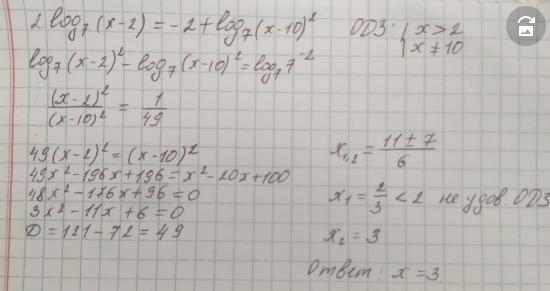 2 log₇(x-2) = -2 + log₇(x-10)²
ОДЗ: { x > 2
x ≠ 10
log₇(x-2)² - log₇(x-10)² = log₇7⁻²
(x-2)²/(x-10)² = 1/49
49(x-2)² = (x-10)²
49x² - 196x + 196 = x² - 20x + 100
48x² - 176x + 96 = 0
3x² - 11x + 6 = 0
D = 121 - 72 = 49
x₁,₂ = (11 ± 7)/6
x₁ = 2/3 < 2 не удов ОДЗ
x₂ = 3
Ответ: x = 3.